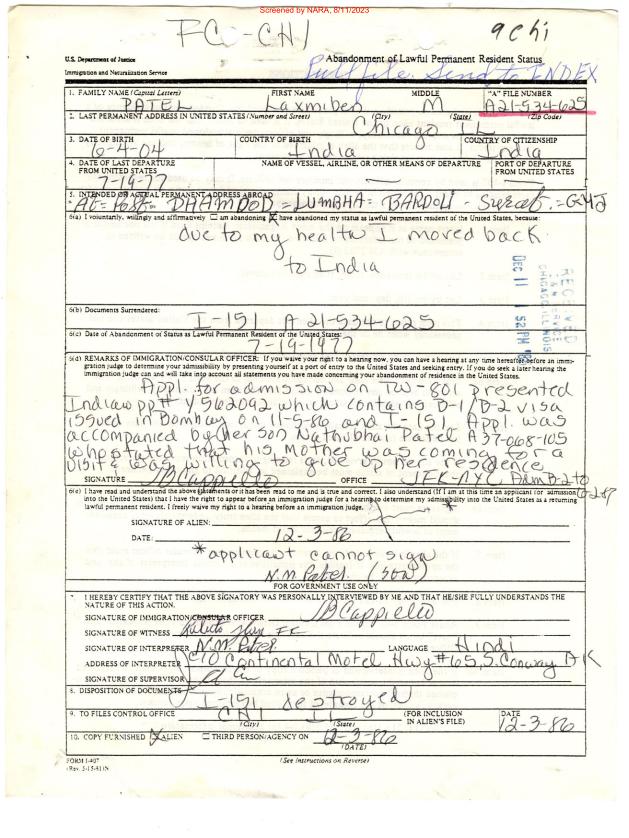 Screened by NARA, 8/11/2023
FC-CHI
9chi
U.S. Department of Justice
Immigration and Naturalization Service
Abandonment of Lawful Permanent Resident Status
Pull file. Send to INDEX
1. FAMILY NAME (Capital Letters) FIRST NAME MIDDLE "A" FILE NUMBER
PATEL Laxmiben M A21-534-625
2. LAST PERMANENT ADDRESS IN UNITED STATES (Number and Street) (City) (State) (Zip Code)
Chicago IL
3. DATE OF BIRTH COUNTRY OF BIRTH COUNTRY OF CITIZENSHIP
6-4-04 India India
4. DATE OF LAST DEPARTURE FROM UNITED STATES NAME OF VESSEL, AIRLINE, OR OTHER MEANS OF DEPARTURE PORT OF DEPARTURE FROM UNITED STATES
7-19-77 — —
5. INTENDED OR ACTUAL PERMANENT ADDRESS ABROAD
At = Post = DHAMDOD = LUMBHA = BARDOLI - Surat. = GUJ
6(a) I voluntarily, willingly and affirmatively ☐ am abandoning ☒ have abandoned my status as lawful permanent resident of the United States, because:
due to my health I moved back
to India
RECEIVED
I & N SERVICE
CHICAGO, ILLINOIS
DEC 11 1 52 PM '86
6(b) Documents Surrendered:
I-151 A 21-534-625
6(c) Date of Abandonment of Status as Lawful Permanent Resident of the United States:
7-19-1977
6(d) REMARKS OF IMMIGRATION/CONSULAR OFFICER: If you waive your right to a hearing now, you can have a hearing at any time hereafter before an immi-
gration judge to determine your admissibility by presenting yourself at a port of entry to the United States and seeking entry. If you do seek a later hearing the
immigration judge can and will take into account all statements you have made concerning your abandonment of residence in the United States.
Appl. for admission on TW-801 presented
Indian pp# Y562092 which contains B-1/B-2 visa
issued in Bombay on 11-5-86 and I-151 Appl. was
accompanied by her son Nathubhai Patel A37-068-105
who stated that his Mother was coming for a
visit & was willing to give up her residence
SIGNATURE JBCappiello OFFICE JFK-NYC Adm B-2 to
6-2-87
6(e) I have read and understand the above statements or it has been read to me and is true and correct. I also understand (If I am at this time an applicant for admission
into the United States) that I have the right to appear before an immigration judge for a hearing to determine my admissibility into the United States as a returning
lawful permanent resident. I freely waive my right to a hearing before an immigration judge.
SIGNATURE OF ALIEN: *
DATE: 12-3-86
*applicant cannot sign
N.M. Patel. (SON)
FOR GOVERNMENT USE ONLY
7. I HEREBY CERTIFY THAT THE ABOVE SIGNATORY WAS PERSONALLY INTERVIEWED BY ME AND THAT HE/SHE FULLY UNDERSTANDS THE
NATURE OF THIS ACTION.
SIGNATURE OF IMMIGRATION/CONSULAR OFFICER JBCappiello
SIGNATURE OF WITNESS
SIGNATURE OF INTERPRETER N.M. Patel. LANGUAGE Hindi
ADDRESS OF INTERPRETER C/O Continental Motel. Hwy #65, S. Conway AK
SIGNATURE OF SUPERVISOR
8. DISPOSITION OF DOCUMENTS
I-151 destroyed
9. TO FILES CONTROL OFFICE CHI IL (City) (State) (FOR INCLUSION IN ALIEN'S FILE) DATE 12-3-86
10. COPY FURNISHED ☒ ALIEN ☐ THIRD PERSON/AGENCY ON 12-3-86 (DATE)
FORM I-407
(Rev. 5-15-81)N
(See Instructions on Reverse)